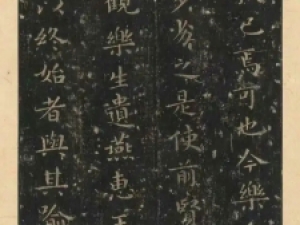 已焉可也今樂
之是使前賢
觀樂生遺燕惠王
終始者與其喻